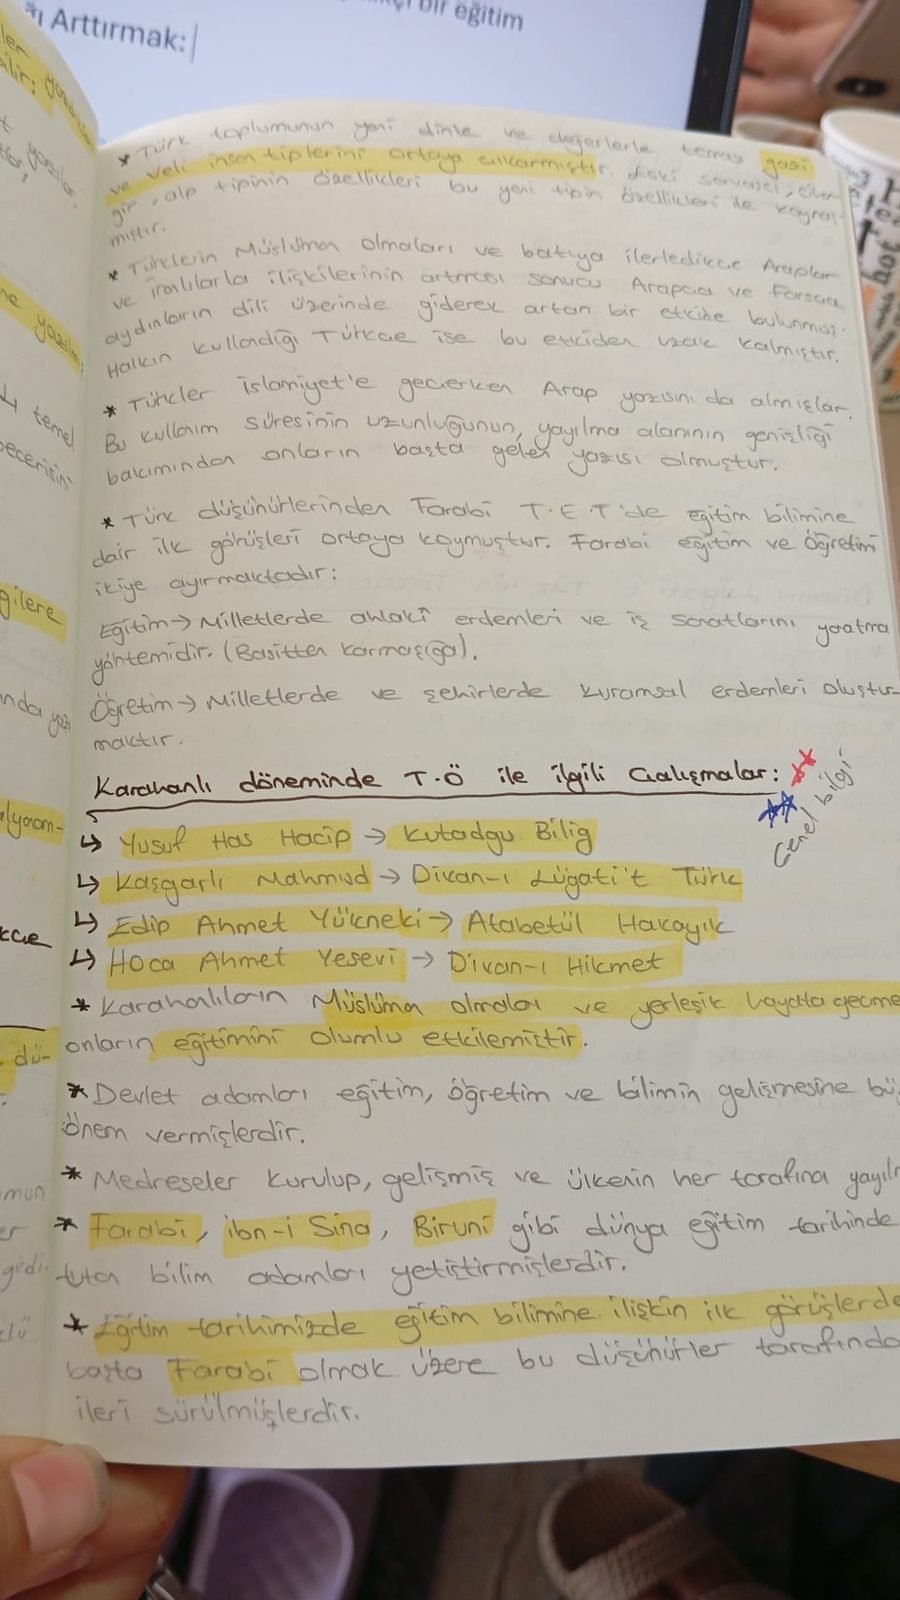 ğı Arttırmak:
bir eğitim
* Türk toplumunun yeni dinle ve değerlerle teması gazi
ve veli insan tiplerini ortaya çıkarmıştır. Eski savaşçı,
alp tipinin özellikleri bu yeni tipin özellikleri ile kaynaş-
mıştır.
* Türklerin Müslüman olmaları ve batıya ilerledikçe Araplar
ve İranlılarla ilişkilerinin artması sonucu Arapça ve Farsça
aydınların dili üzerinde giderek artan bir etkide bulunmuş.
Halkın kullandığı Türkçe ise bu etkiden uzak kalmıştır.
* Türkler İslamiyet'e geçerken Arap yazısını da almışlar.
Bu kullanım süresinin uzunluğunun, yayılma alanının genişliği
bakımından onların başta gelen yazısı olmuştur.
* Türk düşünürlerinden Farabi T.E.T'de eğitim bilimine
dair ilk görüşleri ortaya koymuştur. Farabi eğitim ve öğretimi
ikiye ayırmaktadır:
Eğitim → Milletlerde ahlakî erdemleri ve iş sanatlarını yaratma
yöntemidir. (Basitten karmaşığa).
Öğretim → Milletlerde ve şehirlerde kuramsal erdemleri oluştur-
maktır.
Karahanlı döneminde T.Ö ile ilgili Çalışmalar:
Genel bilgi
↳ Yusuf Has Hacip → Kutadgu Bilig
↳ Kaşgarlı Mahmud → Divan-ı Lügati't Türk
↳ Edip Ahmet Yükneki → Atabetül Hakayık
↳ Hoca Ahmet Yesevi → Divan-ı Hikmet
* Karahanlıların Müslüman olmaları ve yerleşik hayata geçme
onların eğitimini olumlu etkilemiştir.
* Devlet adamları eğitim, öğretim ve bilimin gelişmesine bü
önem vermişlerdir.
* Medreseler kurulup, gelişmiş ve ülkenin her tarafına yayılm
* Farabi, ibn-i Sina, Biruni gibi dünya eğitim tarihinde
tutan bilim adamları yetiştirmişlerdir.
* Eğitim tarihimizde eğitim bilimine ilişkin ilk görüşlerde
başta Farabi olmak üzere bu düşünürler tarafında
ileri sürülmüşlerdir.